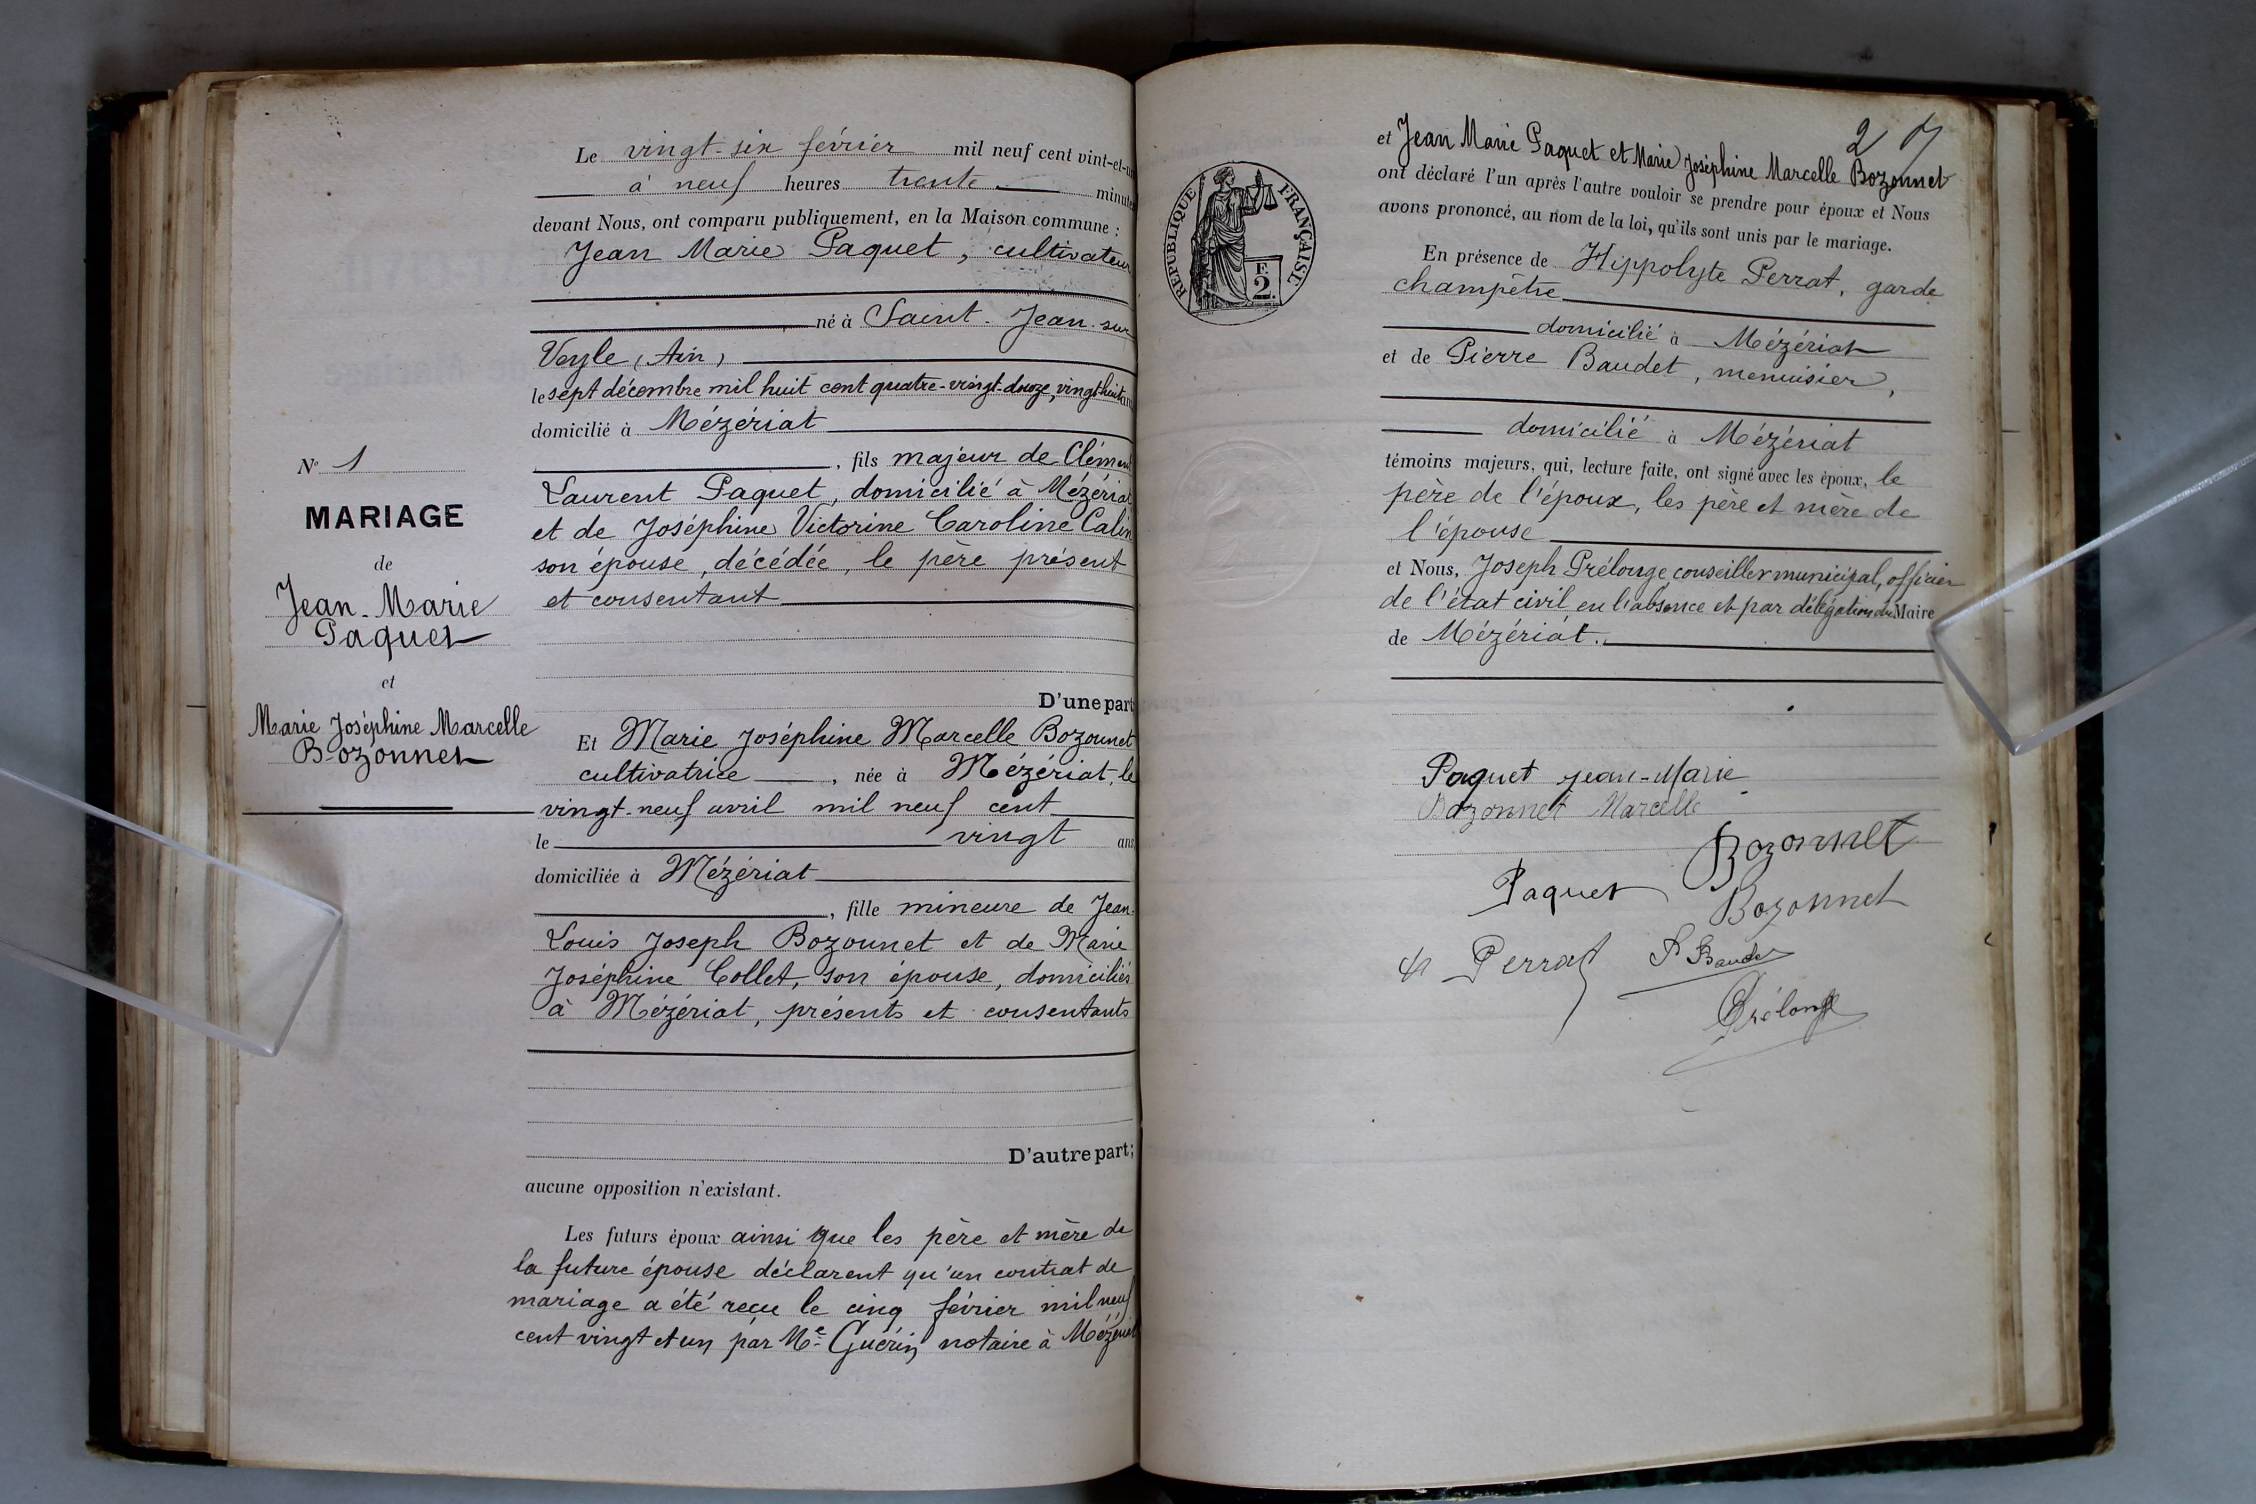 Le vingt-six février mil neuf cent vint-et-un
à neuf heures trente minutes
devant Nous, ont comparu publiquement, en la Maison commune :
Jean Marie Paquet, cultivateur
né à Saint-Jean-sur
Veyle (Ain)
le sept décembre mil huit cent quatre-vingt-douze, vingt-huit ans
domicilié à Mézériat
, fils majeur de Clément
Laurent Paquet, domicilié à Mézériat
et de Joséphine Victorine Caroline Calin
son épouse, décédée, le père présent
et consentant
D'une part
Et Marie Joséphine Marcelle Bozonnet
cultivatrice , née à Mézériat, le
vingt-neuf avril mil neuf cent
le vingt ans
domiciliée à Mézériat
, fille mineure de Jean-
Louis Joseph Bozonnet et de Marie
Joséphine Collet, son épouse, domiciliés
à Mézériat, présents et consentants
D'autre part ;
aucune opposition n'existant.
Les futurs époux ainsi que les père et mère de
la future épouse déclarent qu'un contrat de
mariage a été reçu le cinq février mil neuf
cent vingt et un par Me Guérin notaire à Mézériat
N° 1
MARIAGE
de
Jean-Marie
Paquet
et
Marie Joséphine Marcelle
Bozonnet
2
RÉPUBLIQUE FRANÇAISE
F.
2.
et Jean Marie Paquet et Marie Joséphine Marcelle Bozonnet
ont déclaré l'un après l'autre vouloir se prendre pour époux et Nous
avons prononcé, au nom de la loi, qu'ils sont unis par le mariage.
En présence de Hippolyte Perrat, garde
champêtre
domicilié à Mézériat
et de Pierre Baudet, menuisier,
domicilié à Mézériat
témoins majeurs, qui, lecture faite, ont signé avec les époux, le
père de l'époux, les père et mère de
l'épouse
et Nous, Joseph Prélonge, conseiller municipal, officier
de l'état civil en l'absence et par délégation du Maire
de Mézériat.
Paquet Jean-Marie
Bozonnet Marcelle
Bozonnet
Paquet
Bozonnet
Perrat
P Baudet
Prélonge